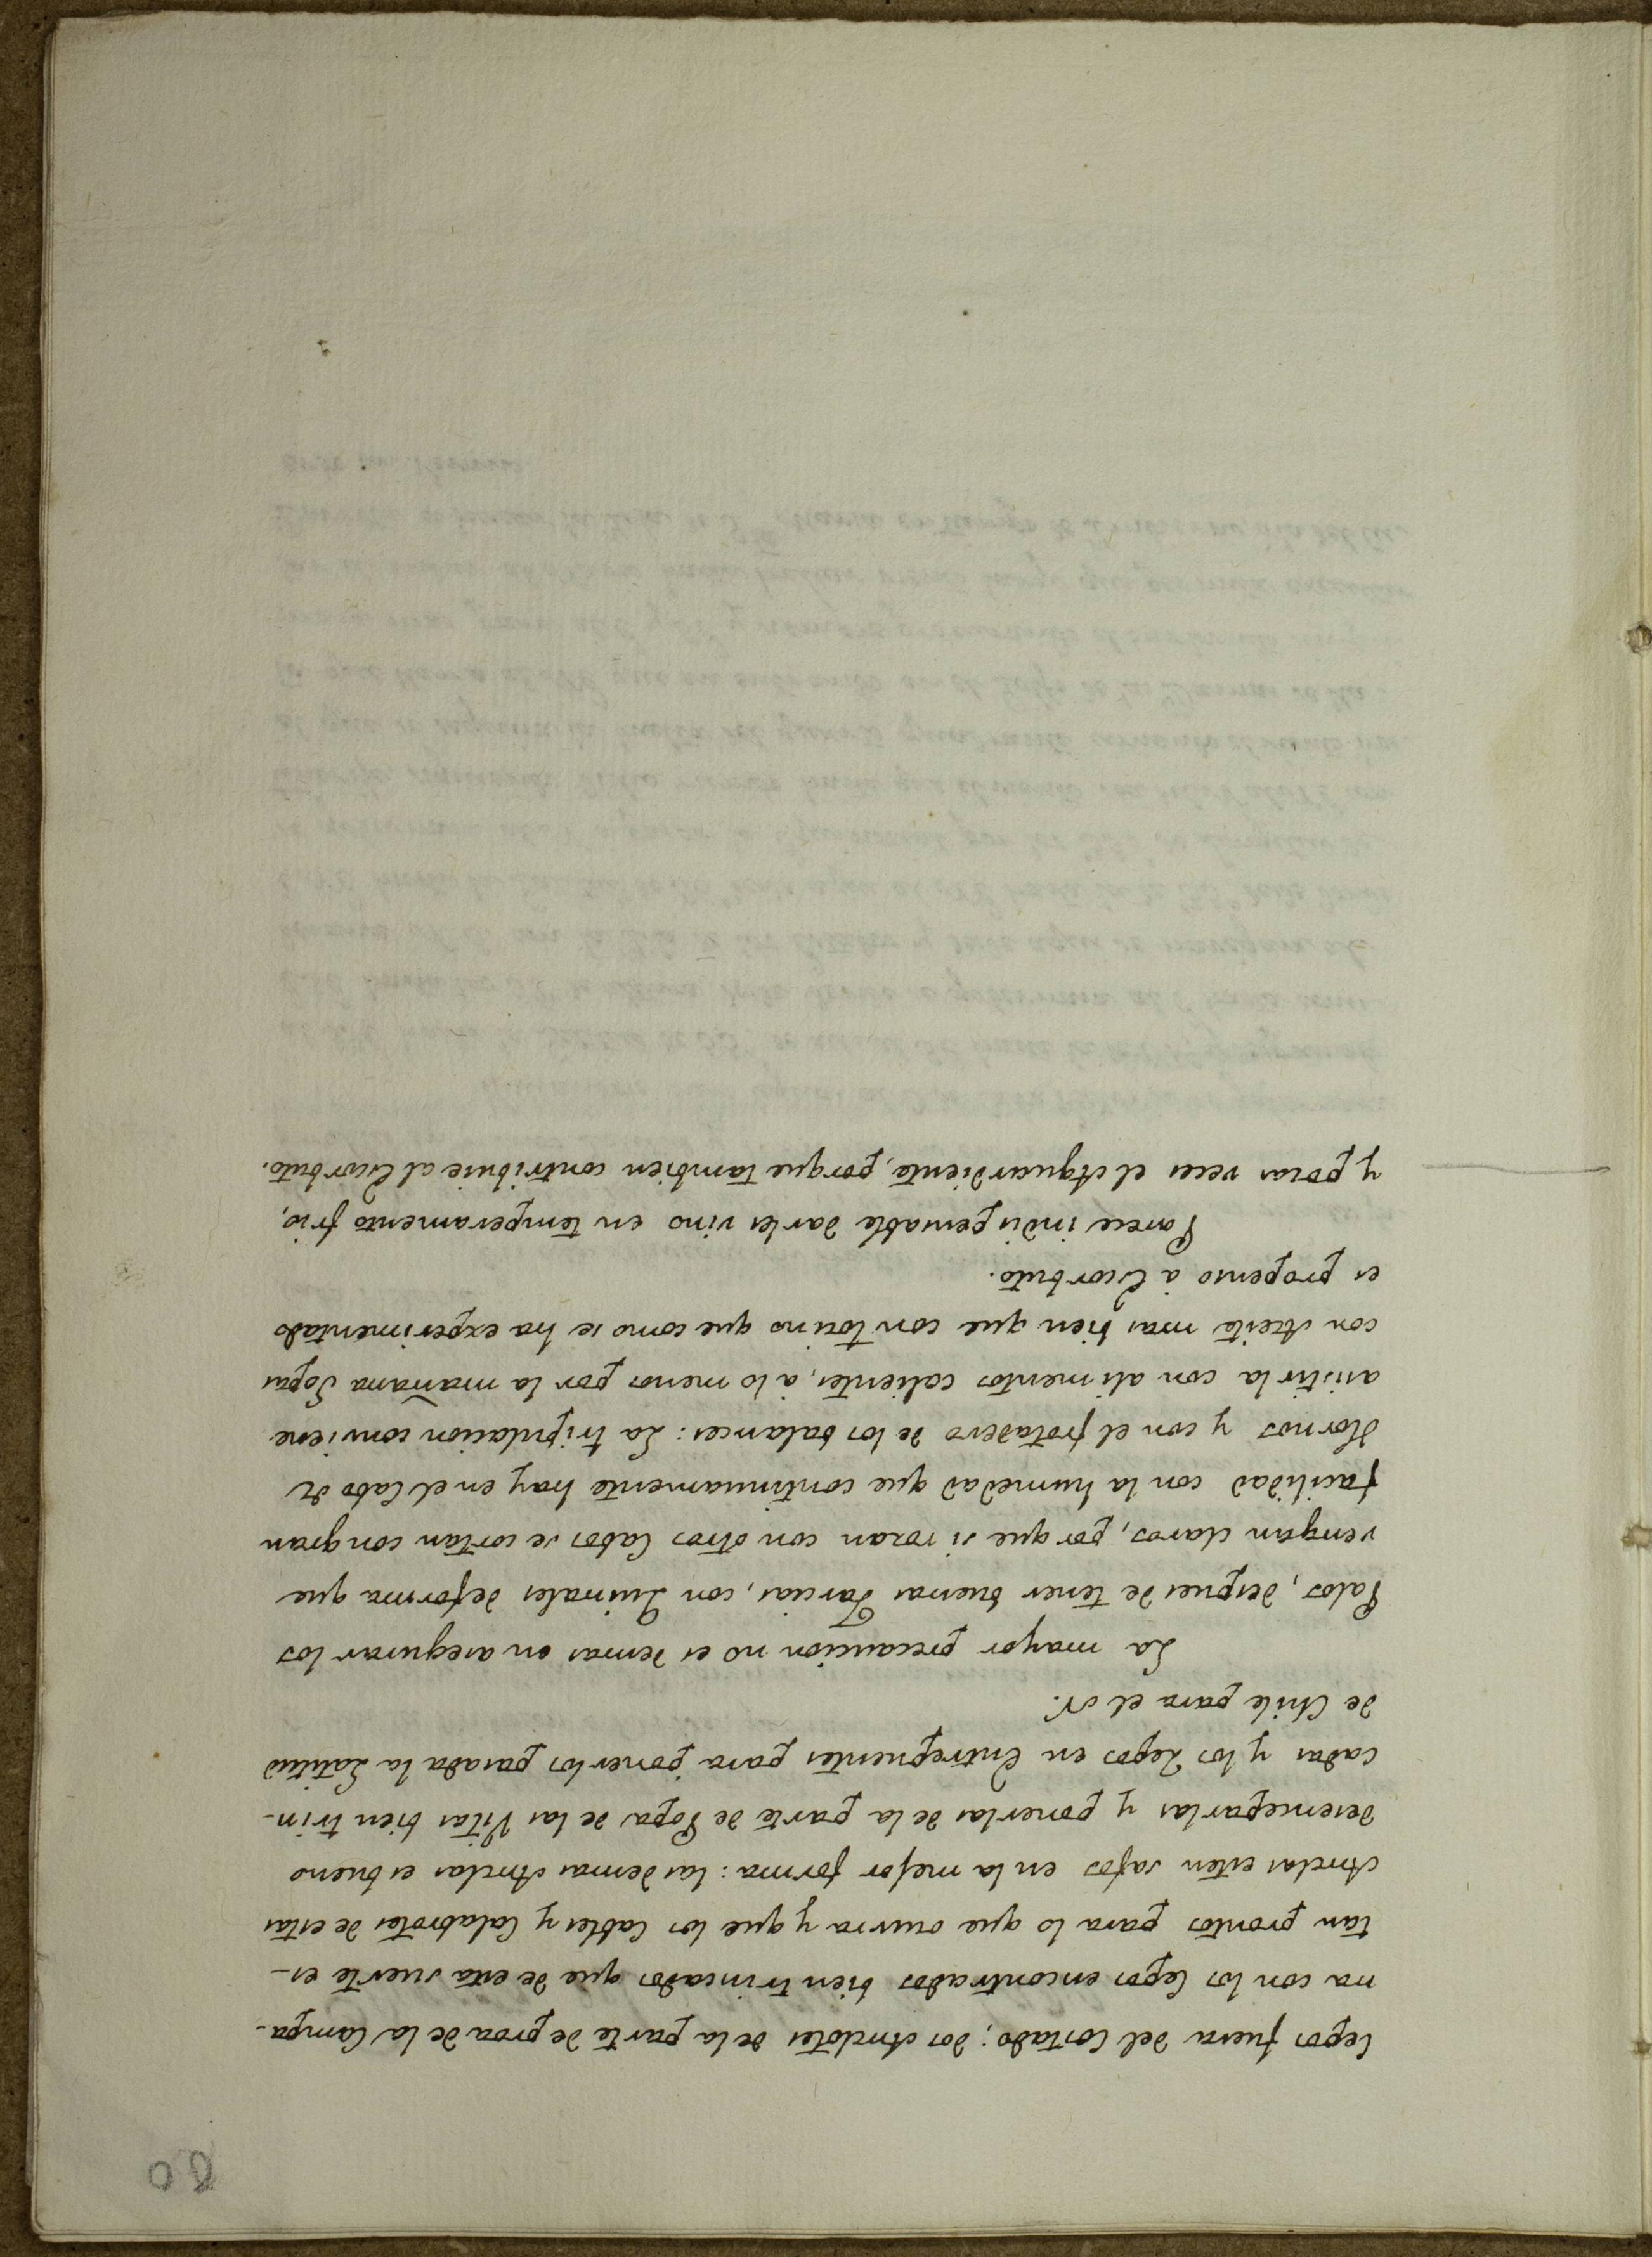 80
Cepos fuera del Costado; dos Anclotes de la parte de proa de la Campa-
na con los Cepos encontrados bien trincados que de esta suerte es-
tan prontos para lo que ocurra y que los Cables y Calabrotes de estas
Anclas esten safos en la mejor forma: las demas Anclas es bueno
desenceparlas y ponerlas de la parte de Popa de las Vitas bien trin-
cadas y los Zepos en Entrepuentes para ponerlos pasada la Latitud
de Chile para el N.
La mayor precaucion no es demas en asegurar los
Palos, despues de tener buenas Jarcias, con Quinales de forma que
vengan claros, por que si rozan con otros Cabos se cortan con gran
facilidad con la humedad que continuamente hay en el Cabo de
Hornos y con el frotadero de los balances: La tripulacion conviene
asistirla con alimentos calientes, à lo menos por la mañana Sopas
con Aceite mas bien que con tocino que como se ha experimentado
es propenso à Escorbuto.
Parece indispensable darles vino en temperamento frio,
y pocas veces el Aguardiente, porque tambien contribuie al Escorbuto.